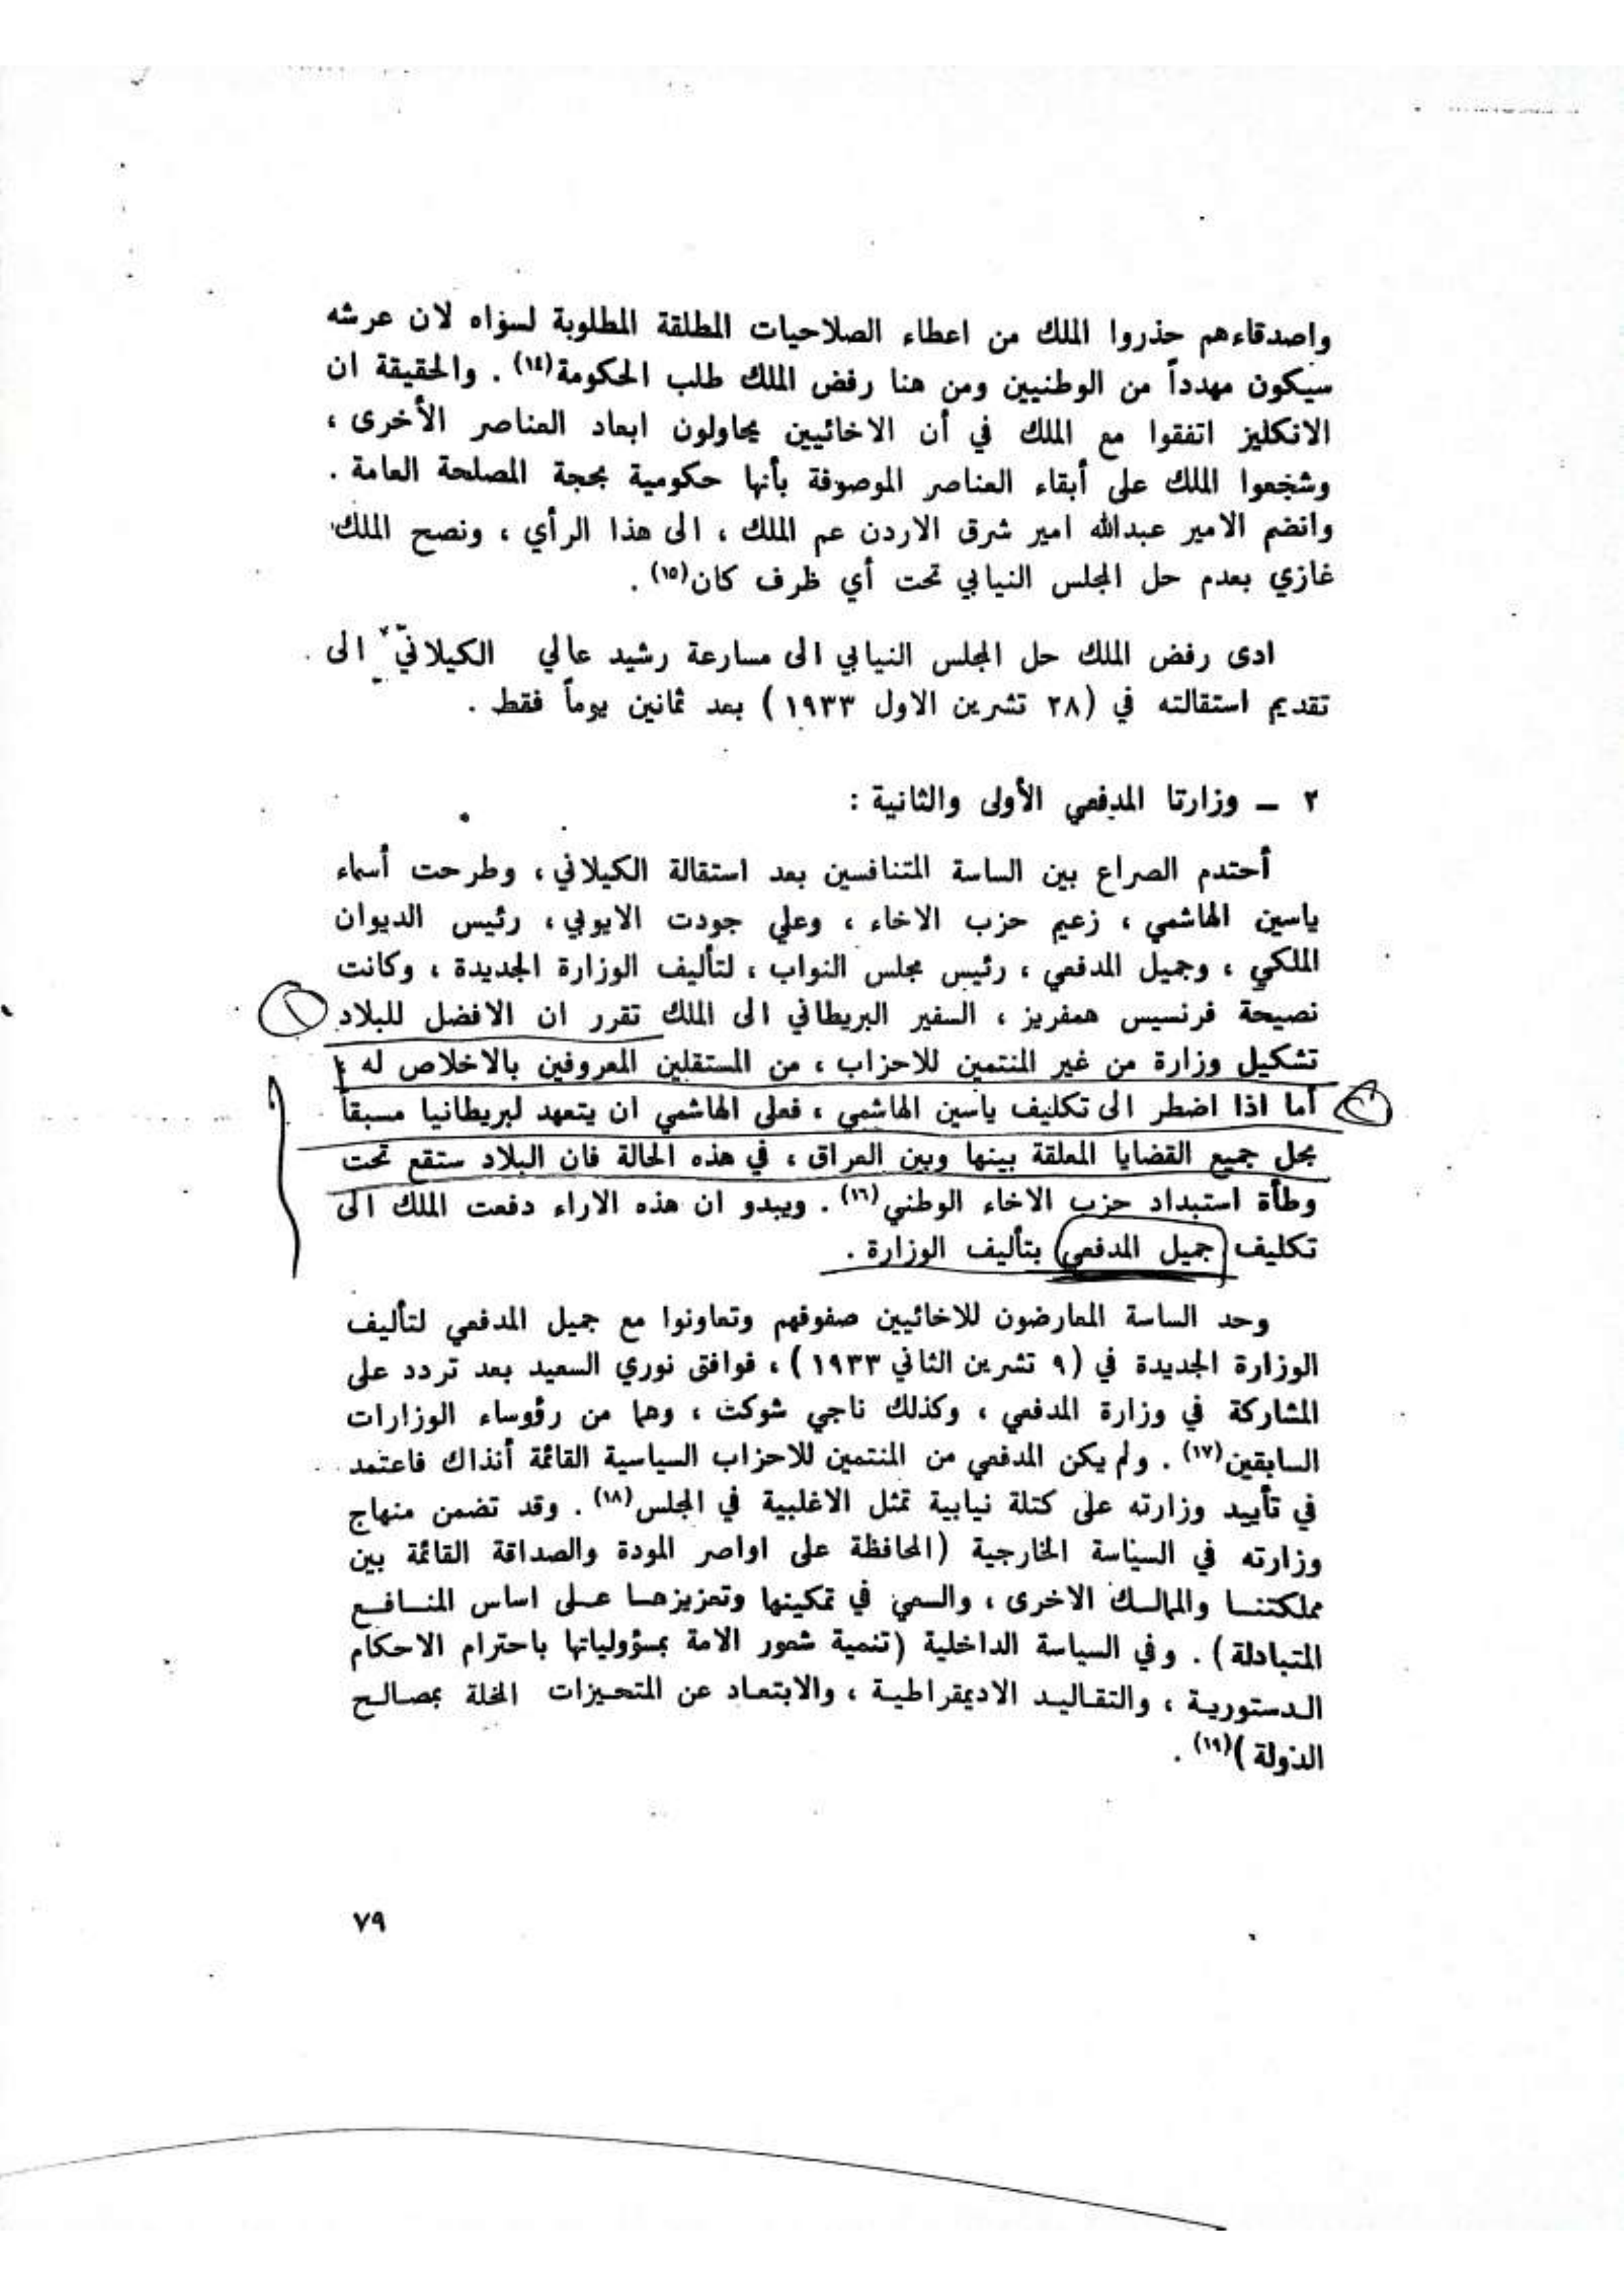 واصدقاءهم حذروا الملك من اعطاء الصلاحيات المطلقة المطلوبة لسؤاه لان عرشه
سيكون مهدداً من الوطنيين ومن هنا رفض الملك طلب الحكومة(١٤) . والحقيقة ان
الانكليز اتفقوا مع الملك في أن الاخائيين يحاولون ابعاد العناصر الأخرى ،
وشخعوا الملك على أبقاء العناصر الموصوفة بأنها حكومية بحجة المصلحة العامة .
وانضم الامير عبدالله امير شرق الاردن عم الملك ، الى هذا الرأي ، ونصح الملك
غازي بعدم حل المجلس النيابي تحت أي ظرف كان(١٥) .
ادى رفض الملك حل المجلس النيابي الى مسارعة رشيد عالي الكيلاني الى
تقديم استقالته في (٢٨ تشرين الاول ١٩٣٣) بعد ثمانين يوماً فقط .
٢ ـ وزارتا المدفعي الأولى والثانية :
أحتدم الصراع بين الساسة المتنافسين بعد استقالة الكيلاني ، وطرحت أسماء
ياسين الهاشمي ، زعيم حزب الاخاء ، وعلي جودت الايوبي ، رئيس الديوان
الملكي ، وجميل المدفعي ، رئيس مجلس النواب ، لتأليف الوزارة الجديدة ، وكانت
نصيحة فرنسيس همفريز ، السفير البريطاني الى الملك تقرر ان الافضل للبلاد
تشكيل وزارة من غير المنتمين للاحزاب ، من المستقلين المعروفين بالاخلاص له ؛
أما اذا اضطر الى تكليف ياسين الهاشمي ، فعلى الهاشمي ان يتعهد لبريطانيا مسبقاً
بحل جميع القضايا المعلقة بينها وبين العراق ، في هذه الحالة فان البلاد ستقع تحت
وطأة استبداد حزب الاخاء الوطني(١٦) . ويبدو ان هذه الاراء دفعت الملك الى
تكليف جميل المدفعي بتأليف الوزارة .
وحد الساسة المعارضون للاخائيين صفوفهم وتعاونوا مع جميل المدفعي لتأليف
الوزارة الجديدة في (٩ تشرين الثاني ١٩٣٣) ، فوافق نوري السعيد بعد تردد على
المشاركة في وزارة المدفعي ، وكذلك ناجي شوكت ، وهما من رؤوساء الوزارات
السابقين(١٧) . ولم يكن المدفعي من المنتمين للاحزاب السياسية القائمة أنذاك فاعتمد
في تأييد وزارته على كتلة نيابية تمثل الاغلبية في المجلس(١٨) . وقد تضمن منهاج
وزارته في السياسة الخارجية (المحافظة على اواصر المودة والصداقة القائمة بين
مملكتنا والممالك الاخرى ، والسعي في تمكينها وتعزيزها على اساس المنافع
المتبادلة) . وفي السياسة الداخلية (تنمية شعور الامة بمسؤولياتها باحترام الاحكام
الدستورية ، والتقاليد الاديمقراطية ، والابتعاد عن المتحيزات المخلة بمصالح
الدولة)(١٩) .
٧٩